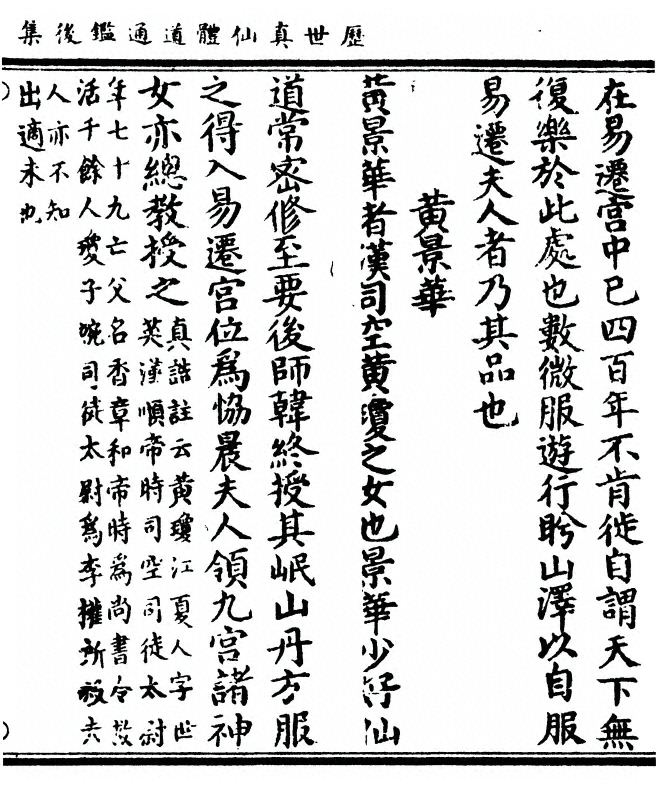 歷世真仙體道通鑑後集
在易遷宮中已四百年不肯徙自謂天下無
復樂於此處也數微服遊行盻山澤以自服
易遷夫人者乃其品也
黃景華
黃景華者漢司空黃瓊之女也景華少好仙
道常密修至要後師韓終授其岷山丹方服
之得入易遷宮位爲恊晨夫人領九宮諸神
女亦總教授之
真誥註云黃瓊江夏人字世
英漢順帝時司空司徒太尉
年七十九亡父名香章和帝時爲尚書令救
活千餘人瓊子婉司徒太尉爲李權所殺夫
人亦不知
出適未也